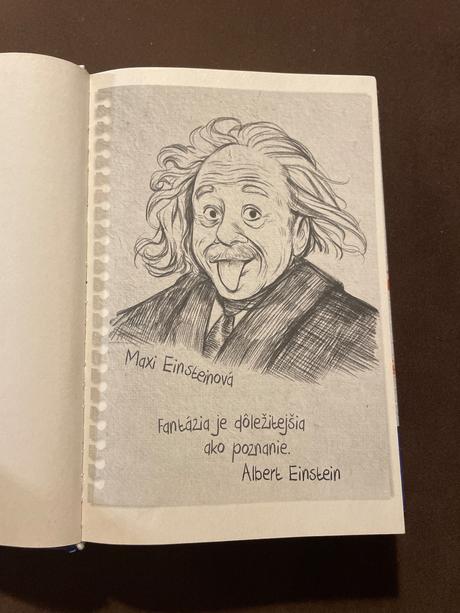 Maxi Einsteinová
Fantázia je dôležitejšia
ako poznanie.
Albert Einstein